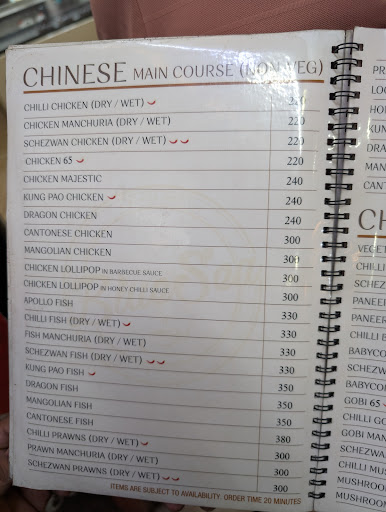 CHINESE MAIN COURSE (NON VEG)
CHILLI CHICKEN (DRY / WET)
CHICKEN MANCHURIA (DRY / WET) 220
SCHEZWAN CHICKEN (DRY / WET) 220
CHICKEN 65 220
CHICKEN MAJESTIC 240
KUNG PAO CHICKEN 240
DRAGON CHICKEN 240
CANTONESE CHICKEN 300
MANGOLIAN CHICKEN 300
CHICKEN LOLLIPOP IN BARBECUE SAUCE 300
CHICKEN LOLLIPOP IN HONEY CHILLI SAUCE 300
APOLLO FISH 330
CHILLI FISH (DRY / WET) 330
FISH MANCHURIA (DRY / WET) 330
SCHEZWAN FISH (DRY / WET) 330
KUNG PAO FISH 350
DRAGON FISH 350
MANGOLIAN FISH 350
CANTONESE FISH 380
CHILLI PRAWNS (DRY / WET) 300
PRAWN MANCHURIA (DRY / WET) 300
SCHEZWAN PRAWNS (DRY / WET) 300
ITEMS ARE SUBJECT TO AVAILABILITY. ORDER TIME 20 MINUTES
KUN
DRA
MAN
CANT
CH
CHILLI
PANEER
PANEER
CHILLI
BABYCO
GOBI 65
CHILLI GO
GOBI MAN
CHILLI MU
MUSHROOM
MUSHROOM